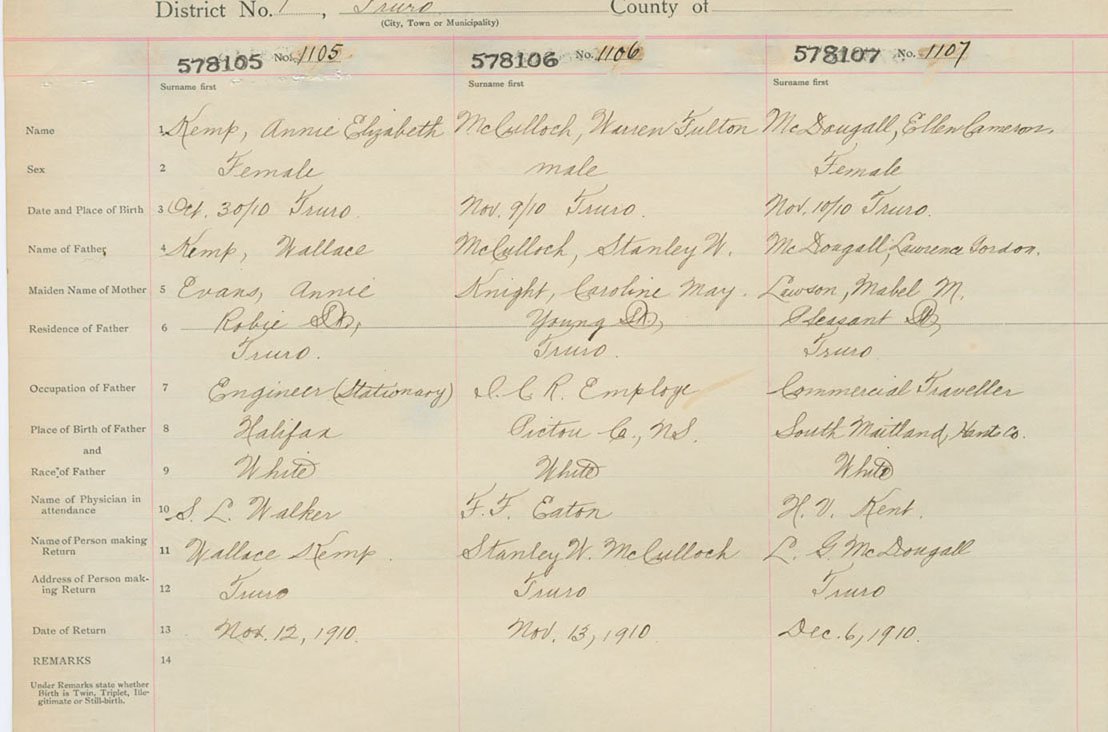 District No. 1, Truro County of
(City, Town or Municipality)
578105 No. 1105 578106 No. 1106 578107 No. 1107
Surname first Surname first Surname first
Name 1 Kemp, Annie Elizabeth McCulloch, Warren Fulton McDougall, Ellen Cameron
Sex 2 Female male Female
Date and Place of Birth 3 Oct. 30/10 Truro. Nov. 9/10 Truro. Nov. 10/10 Truro.
Name of Father 4 Kemp, Wallace McCulloch, Stanley W. McDougall, Lawrence Gordon.
Maiden Name of Mother 5 Evans, Annie Knight, Caroline May. Lawson, Mabel M.
Residence of Father 6 Robie St, Young St, Pleasant St,
Truro. Truro. Truro.
Occupation of Father 7 Engineer (Stationary) I.C.R. Employe Commercial Traveller
Place of Birth of Father 8 Halifax Pictou Co., N.S. South Maitland, Hants Co.
and
Race of Father 9 White White White
Name of Physician in
attendance 10 S. L. Walker F. F. Eaton H. V. Kent.
Name of Person making
Return 11 Wallace Kemp. Stanley W. McCulloch L. G. McDougall
Address of Person mak-
ing Return 12 Truro Truro Truro
Date of Return 13 Nov. 12, 1910. Nov. 13, 1910 Dec. 6, 1910.
REMARKS 14
Under Remarks state whether
Birth is Twin, Triplet, Ille-
gitimate or Still-birth.